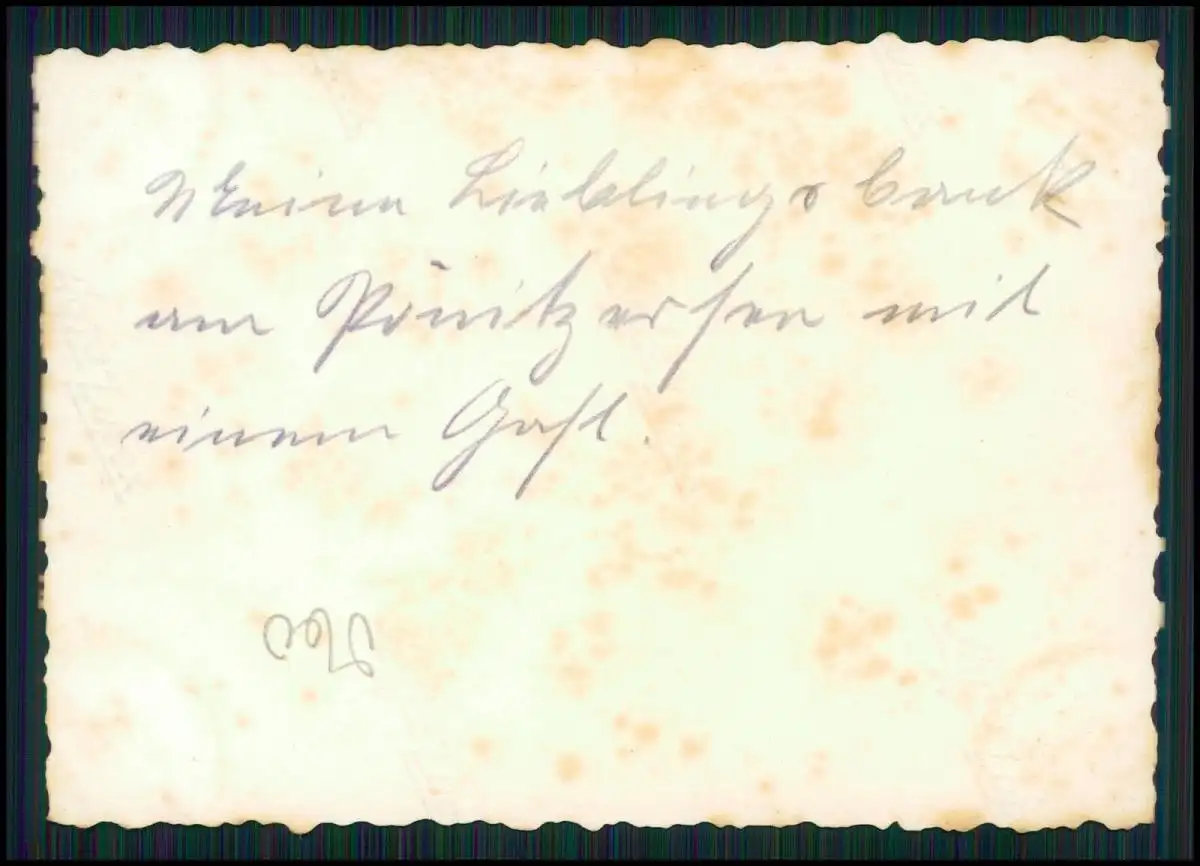 Meine Lieblingsbank
am Pönitzersee mit
einem Gast.